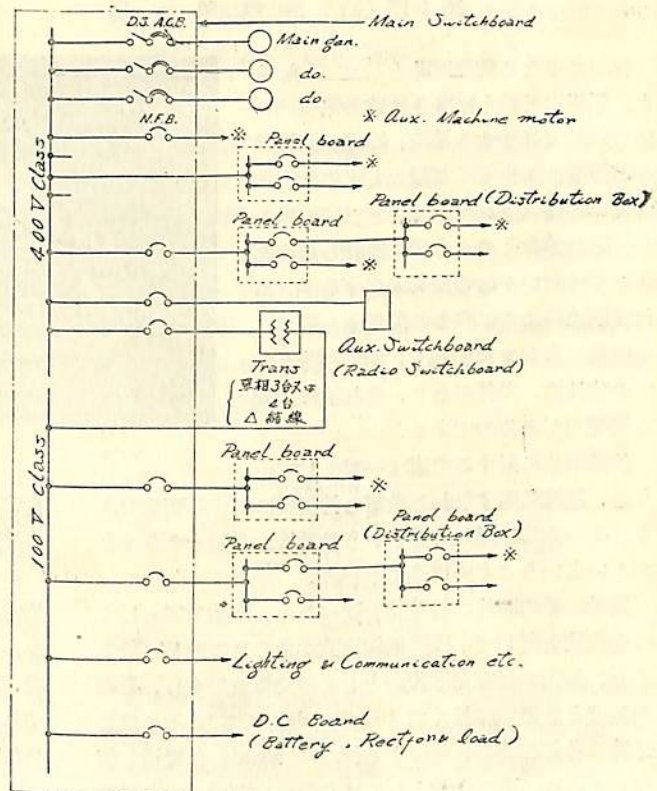 D.S. A.C.B.
Main Switchboard
Main gen.
do.
do.
N.F.B.
※
※ Aux. Machine motor
Panel board
※
400 V Class
Panel board (Distribution Box)
Panel board
※
※
Aux. Switchboard
(Radio Switchboard)
Trans
単相3台又ハ
4台
△ 結線
100 V Class
Panel board
※
Panel board
(Distribution Box)
Panel board
※
Lighting & Communication etc.
D.C. Board
(Battery, load)